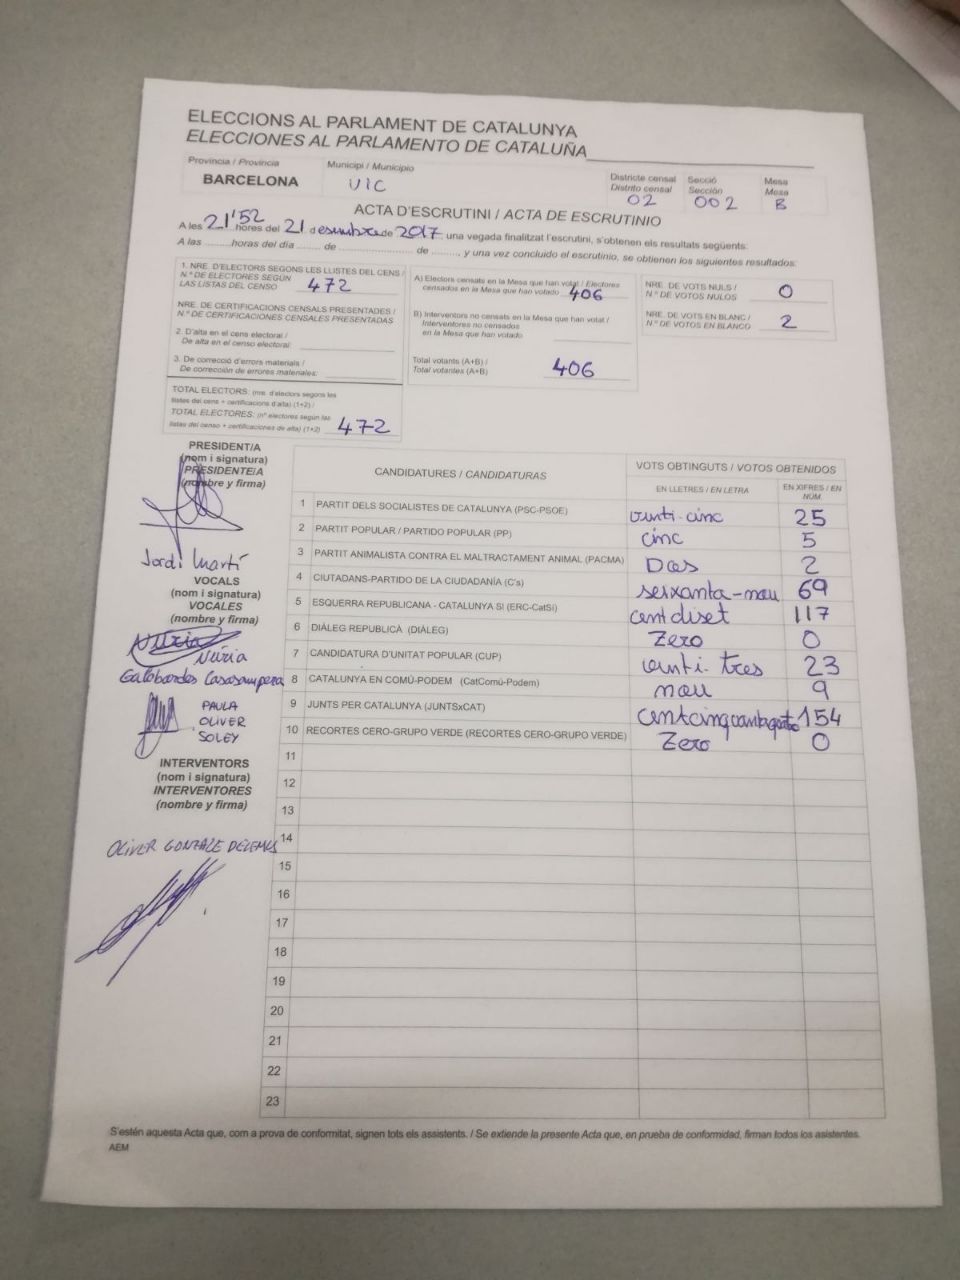 ELECCIONS AL PARLAMENT DE CATALUNYA
ELECCIONES AL PARLAMENTO DE CATALUÑA
Província / Provincia
BARCELONA
Municipi / Municipio
VIC
Districte censal
Distrito censal
02
Secció
Sección
002
Mesa
Mesa
B
ACTA D'ESCRUTINI / ACTA DE ESCRUTINIO
A les 21'52 hores del 21 desembre de 2017, una vegada finalitzat l'escrutini, s'obtenen els resultats següents:
A las ......... horas del día ...... de ........................ de ........., y una vez concluido el escrutinio, se obtienen los siguientes resultados:
1. NRE. D'ELECTORS SEGONS LES LLISTES DEL CENS /
N.º DE ELECTORES SEGÚN
LAS LISTAS DEL CENSO 472
NRE. DE CERTIFICACIONS CENSALS PRESENTADES /
N.º DE CERTIFICACIONES CENSALES PRESENTADAS
2. D'alta en el cens electoral /
De alta en el censo electoral:
3. De correcció d'errors materials /
De corrección de errores materiales:
TOTAL ELECTORS: (nre. d'electors segons les
llistes del cens + certificacions d'alta) (1+2) /
TOTAL ELECTORES: (nº electores según las
listas del censo + certificaciones de alta) (1+2) 472
A) Electors censats en la Mesa que han votat / Electores
censados en la Mesa que han votado 406
B) Interventors no censats en la Mesa que han votat /
Interventores no censados
en la Mesa que han votado
Total votants (A+B) /
Total votantes (A+B) 406
NRE. DE VOTS NULS /
N.º DE VOTOS NULOS 0
NRE. DE VOTS EN BLANC /
N.º DE VOTOS EN BLANCO 2
PRESIDENT/A
(nom i signatura)
PRESIDENTE/A
(nombre y firma)
Jordi Martí
VOCALS
(nom i signatura)
VOCALES
(nombre y firma)
Núria
Núria
Galobardes Casasampera
PAULA
OLIVER
SOLEY
INTERVENTORS
(nom i signatura)
INTERVENTORES
(nombre y firma)
OLIVER GONZALE
CANDIDATURES / CANDIDATURAS
VOTS OBTINGUTS / VOTOS OBTENIDOS
EN LLETRES / EN LETRA
EN XIFRES / EN
NÚM.
1 PARTIT DELS SOCIALISTES DE CATALUNYA (PSC-PSOE) vinti-cinc 25
2 PARTIT POPULAR / PARTIDO POPULAR (PP) cinc 5
3 PARTIT ANIMALISTA CONTRA EL MALTRACTAMENT ANIMAL (PACMA) Dos 2
4 CIUTADANS-PARTIDO DE LA CIUDADANÍA (C's) seixanta-nou 69
5 ESQUERRA REPUBLICANA - CATALUNYA SÍ (ERC-CatSí) cent diset 117
6 DIÀLEG REPUBLICÀ (DIÀLEG) Zero 0
7 CANDIDATURA D'UNITAT POPULAR (CUP) vinti-tres 23
8 CATALUNYA EN COMÚ-PODEM (CatComú-Podem) nou 9
9 JUNTS PER CATALUNYA (JUNTSxCAT) cent cinquanta quatre 154
10 RECORTES CERO-GRUPO VERDE (RECORTES CERO-GRUPO VERDE) Zero 0
11
12
13
14
15
16
17
18
19
20
21
22
23
S'estén aquesta Acta que, com a prova de conformitat, signen tots els assistents. / Se extiende la presente Acta que, en prueba de conformidad, firman todos los asistentes.
AEM